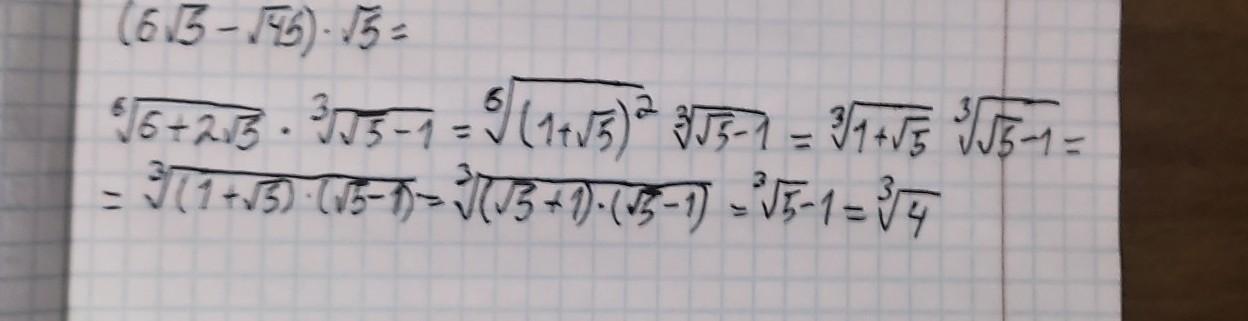 (6√5 − √45) · √5 =
⁶√(6+2√5) · ³√(√5−1) = ⁶√((1+√5)²) ³√(√5−1) = ³√(1+√5) ³√(√5−1) =
= ³√((1+√5)·(√5−1)) = ³√((√5+1)·(√5−1)) = ³√5−1 = ³√4